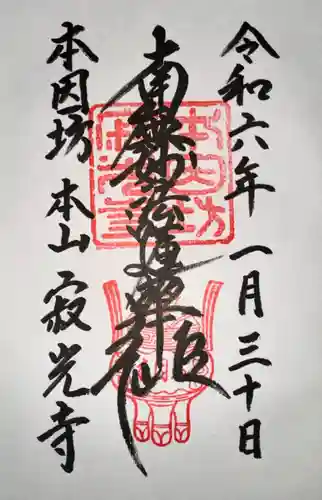 令和六年 一月三十日
南無妙法蓮華経
本因坊 本山 寂光寺